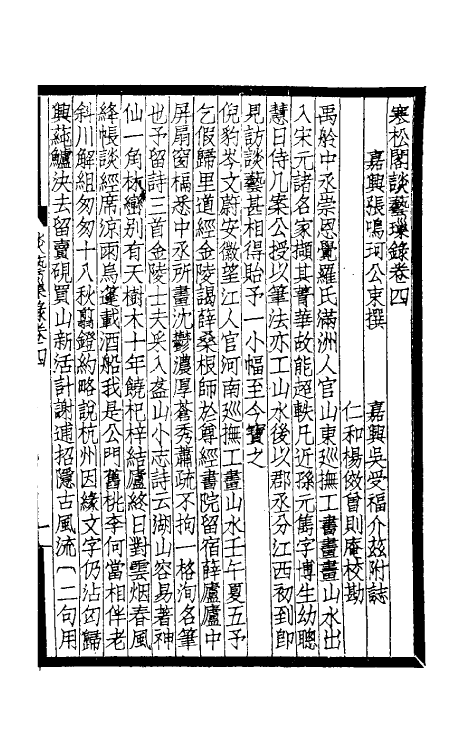 寒松閣談藝璅錄卷四
嘉興張鳴珂公束撰
嘉興吳受福介茲附誌
仁和楊敓曾則庵校勘
禹舲中丞崇恩覺羅氏滿洲人官山東巡撫工書畫畫山水出
入宋元諸名家擷其菁華故能超軼凡近孫元篤字博生幼聰
慧日侍几案公授以筆法亦工山水後以郡丞分江西初到卽
見訪談藝甚相得貽予一小幅至今寶之
倪豹岑文蔚安徽望江人官河南巡撫工畫山水壬午夏五予
乞假歸里道經金陵謁薛桑根師於尊經書院留宿薛廬廬中
屏扇窗槅悉中丞所畫沈鬱濃厚蒼秀蕭疏不拘一格洵名筆
也予留詩三首金陵士夫采入盋山小志詩云湖山容易著神
仙一角林巒别有天樹木十年饒杞梓結廬終日對雲烟春風
絳帳談經席涼雨烏篷載酒船我是公門舊桃李何當相伴老
斜川解組匆匆十八秋翦鐙約略說杭州因緣文字仍沾匄歸
興蒓鱸決去留賣硯買山新活計謝逋招隱古風流〔二句用
談藝璅錄卷四
一